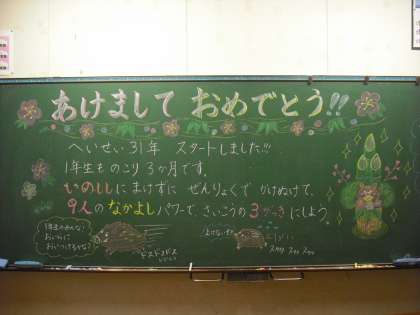 あけまして おめでとう!!
へいせい31年 スタートしました!!!
1年生ものこり3ヶ月です。
いのししにまけずに ぜんりょくで かけぬけて、
9人の なかよしパワーで、さいこうの3がっきにしよう。
1年生のみんな!
ドスドスドス